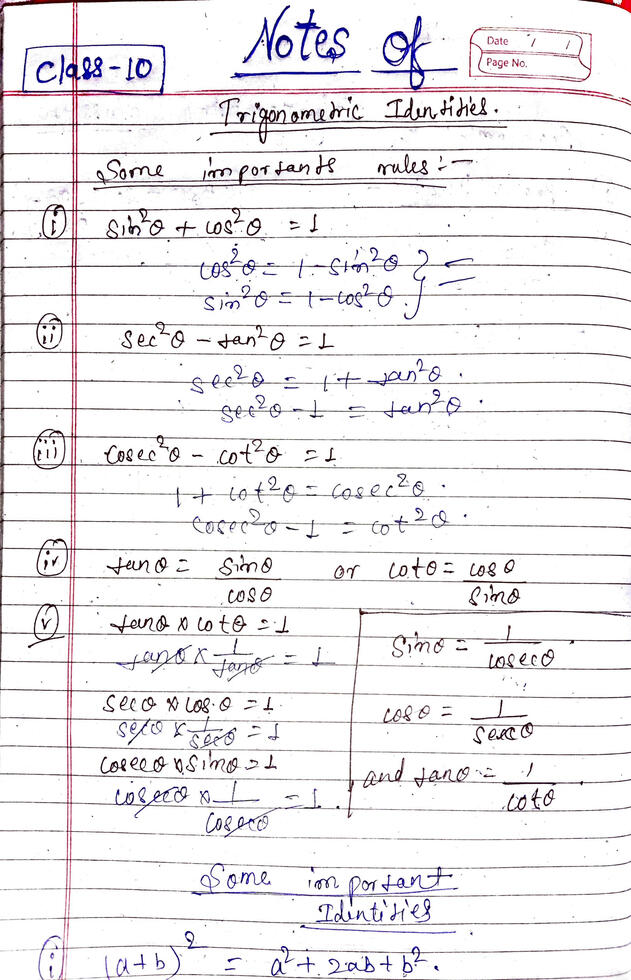 Notes of
Date / /
Page No.
Class-10
Trigonometric Identities.
Some importants rules :-
(i) sin²θ + cos²θ = 1
cos²θ = 1 - sin²θ
sin²θ = 1 - cos²θ.
(ii) sec²θ - tan²θ = 1
sec²θ = 1 + tan²θ.
sec²θ - 1 = tan²θ.
(iii) cosec²θ - cot²θ = 1
1 + cot²θ = cosec²θ.
cosec²θ - 1 = cot²θ.
(iv) tanθ = sinθ/cosθ or cotθ = cosθ/sinθ
(v) tanθ × cotθ = 1
tanθ × 1/tanθ = 1
secθ × cosθ = 1
secθ × 1/secθ = 1
cosecθ × sinθ = 1
cosecθ × 1/cosecθ = 1.
sinθ = 1/cosecθ
cosθ = 1/secθ
and tanθ = 1/cotθ
Some important
Identities
(i) (a+b)² = a² + 2ab + b².